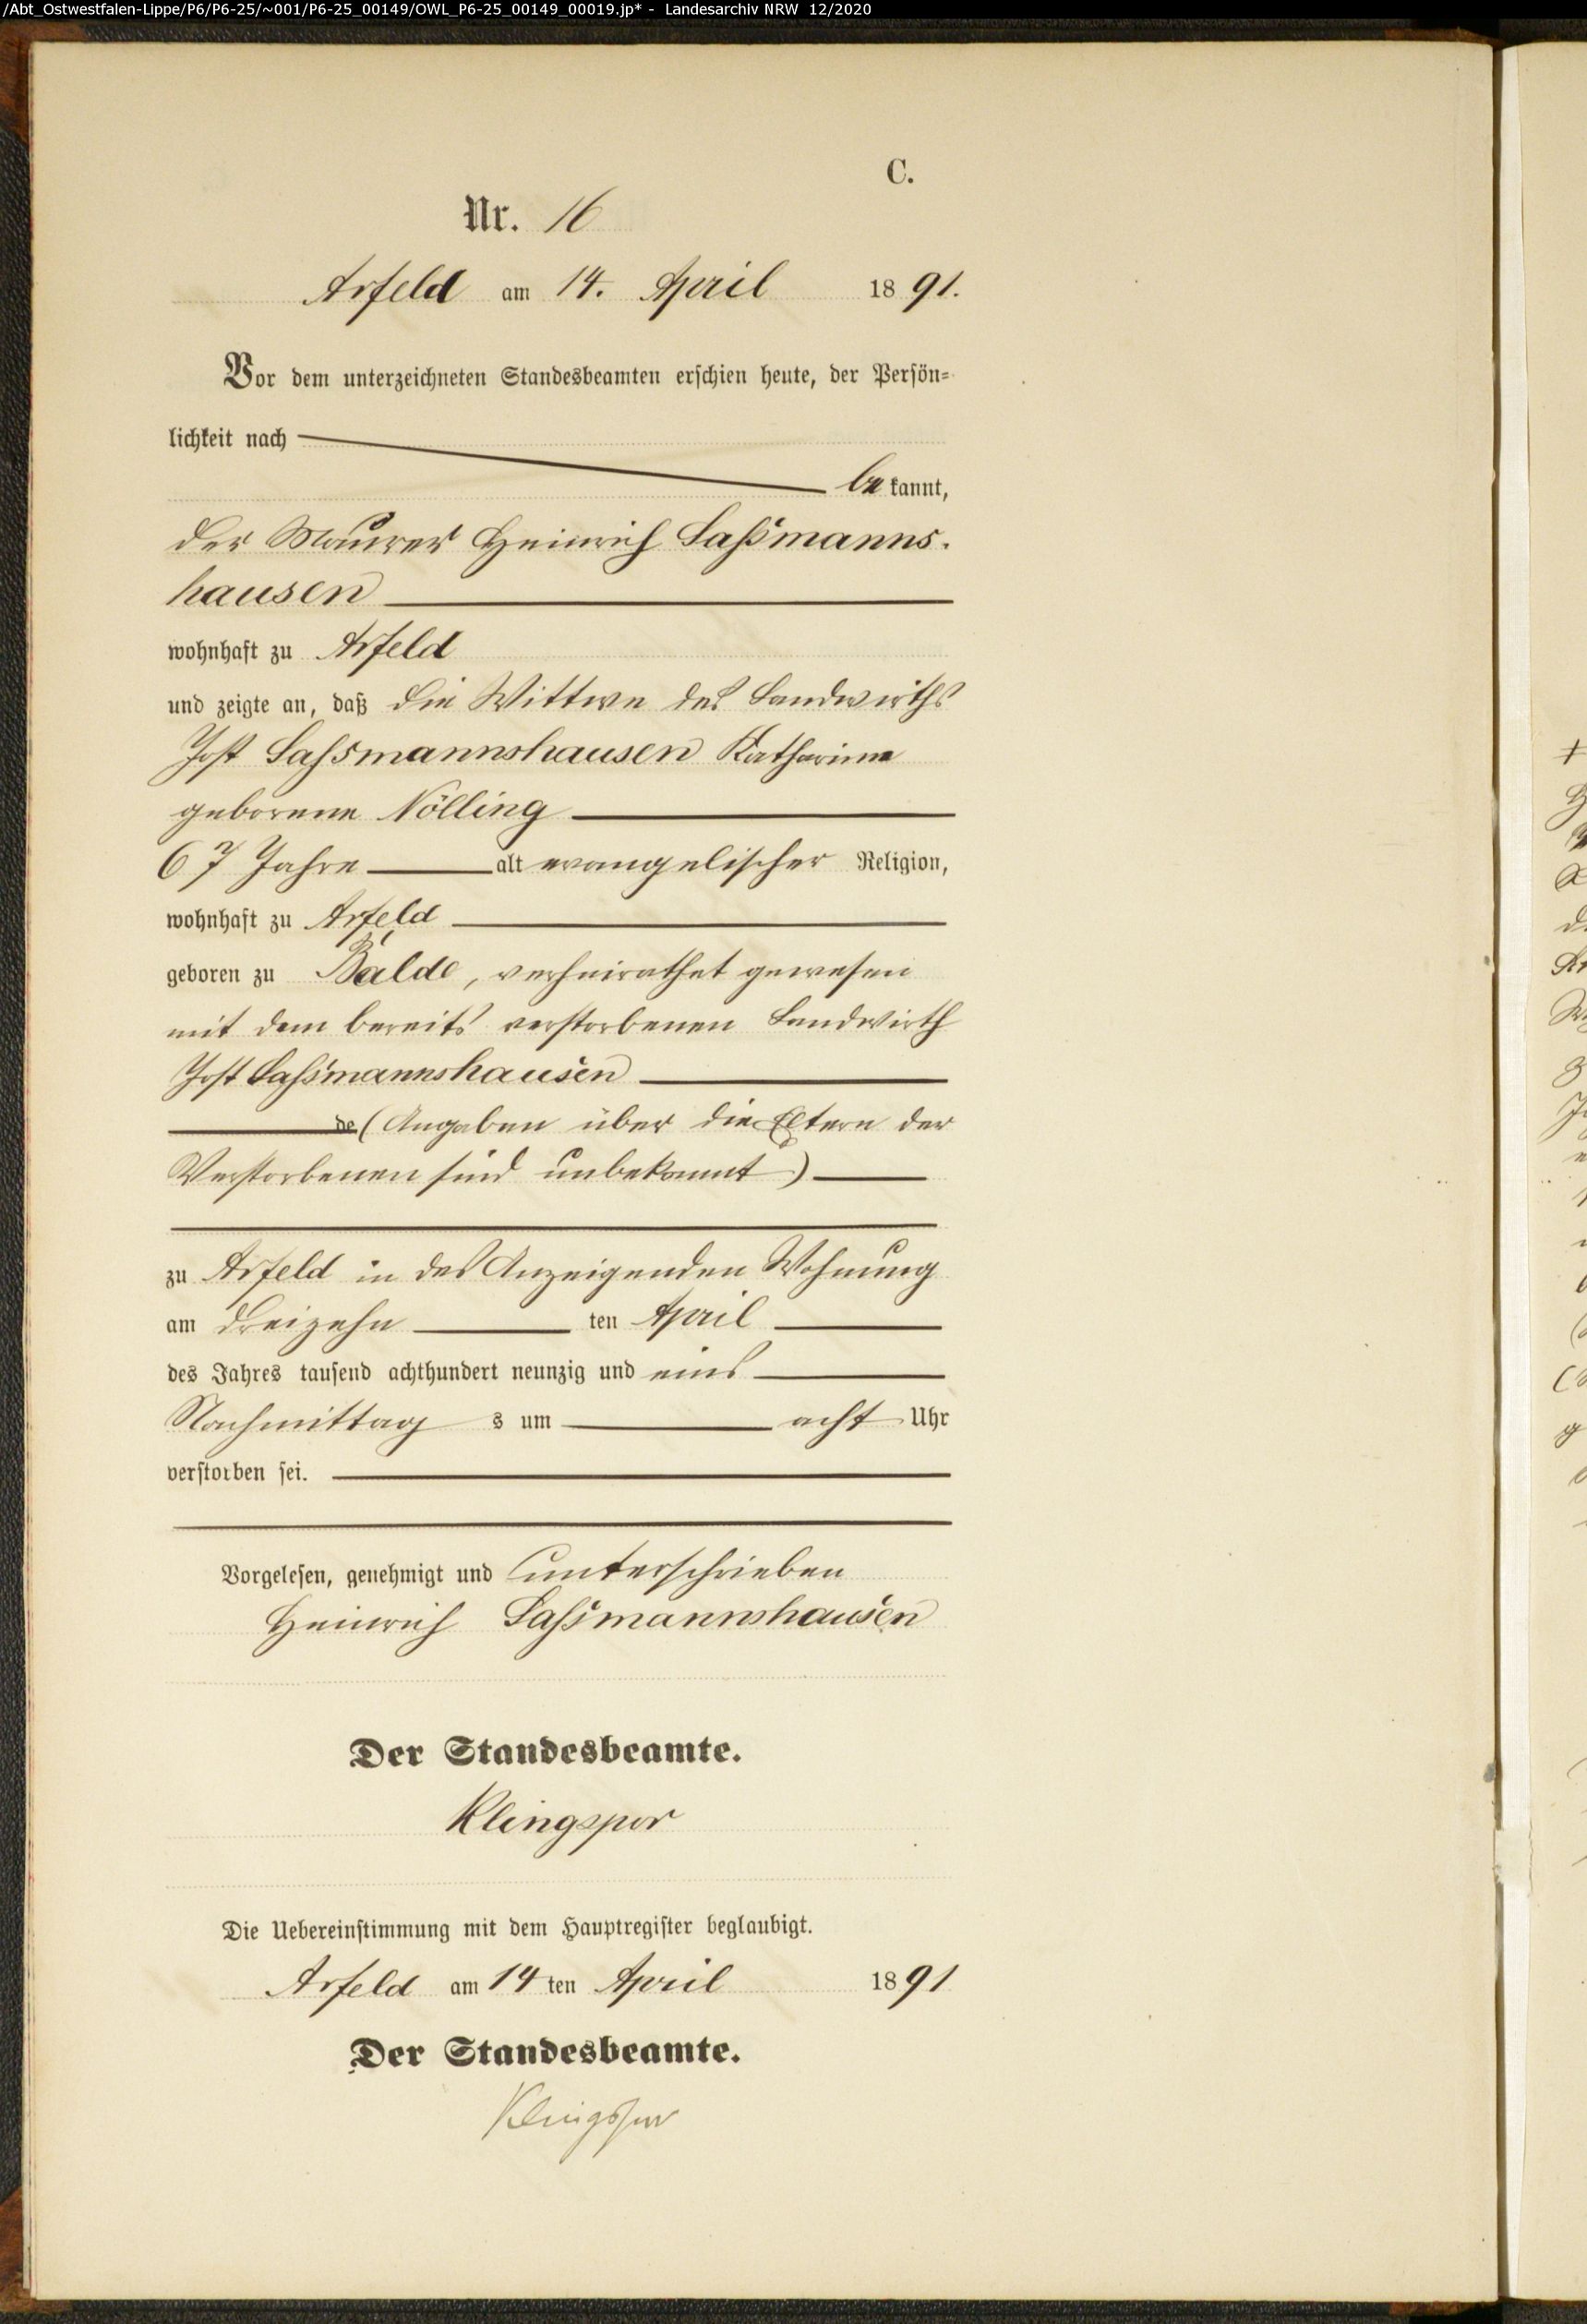 /Abt_Ostwestfalen-Lippe/P6/P6-25/~001/P6-25_00149/OWL_P6-25_00149_00019.jp* - Landesarchiv NRW 12/2020
C.
Nr. 16
Arfeld am 14. April 1891.
Vor dem unterzeichneten Standesbeamten erschien heute, der Persön-
lichkeit nach
bekannt,
der Maurer Heinrich Sassmanns-
hausen
wohnhaft zu Arfeld
und zeigte an, daß die Wittwe des Landwirths
Jost Sassmannshausen Katharine
geborene Nölling
67 Jahre alt evangelischer Religion,
wohnhaft zu Arfeld
geboren zu Balde, verheirathet gewesen
mit dem bereits verstorbenen Landwirth
Jost Sassmannshausen
de (Angaben über die Eltern der
Verstorbenen sind unbekannt)
zu Arfeld in des Anzeigenden Wohnung
am dreizehn ten April
des Jahres tausend achthundert neunzig und eins
Nachmittags um acht Uhr
verstorben sei.
Vorgelesen, genehmigt und unterschrieben
Heinrich Sassmannshausen
Der Standesbeamte.
Klingspor
Die Uebereinstimmung mit dem Hauptregister beglaubigt.
Arfeld am 14 ten April 1891
Der Standesbeamte.
Klingspor